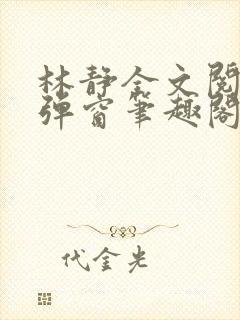 林静全文阅
弹窗笔趣阁
代金光